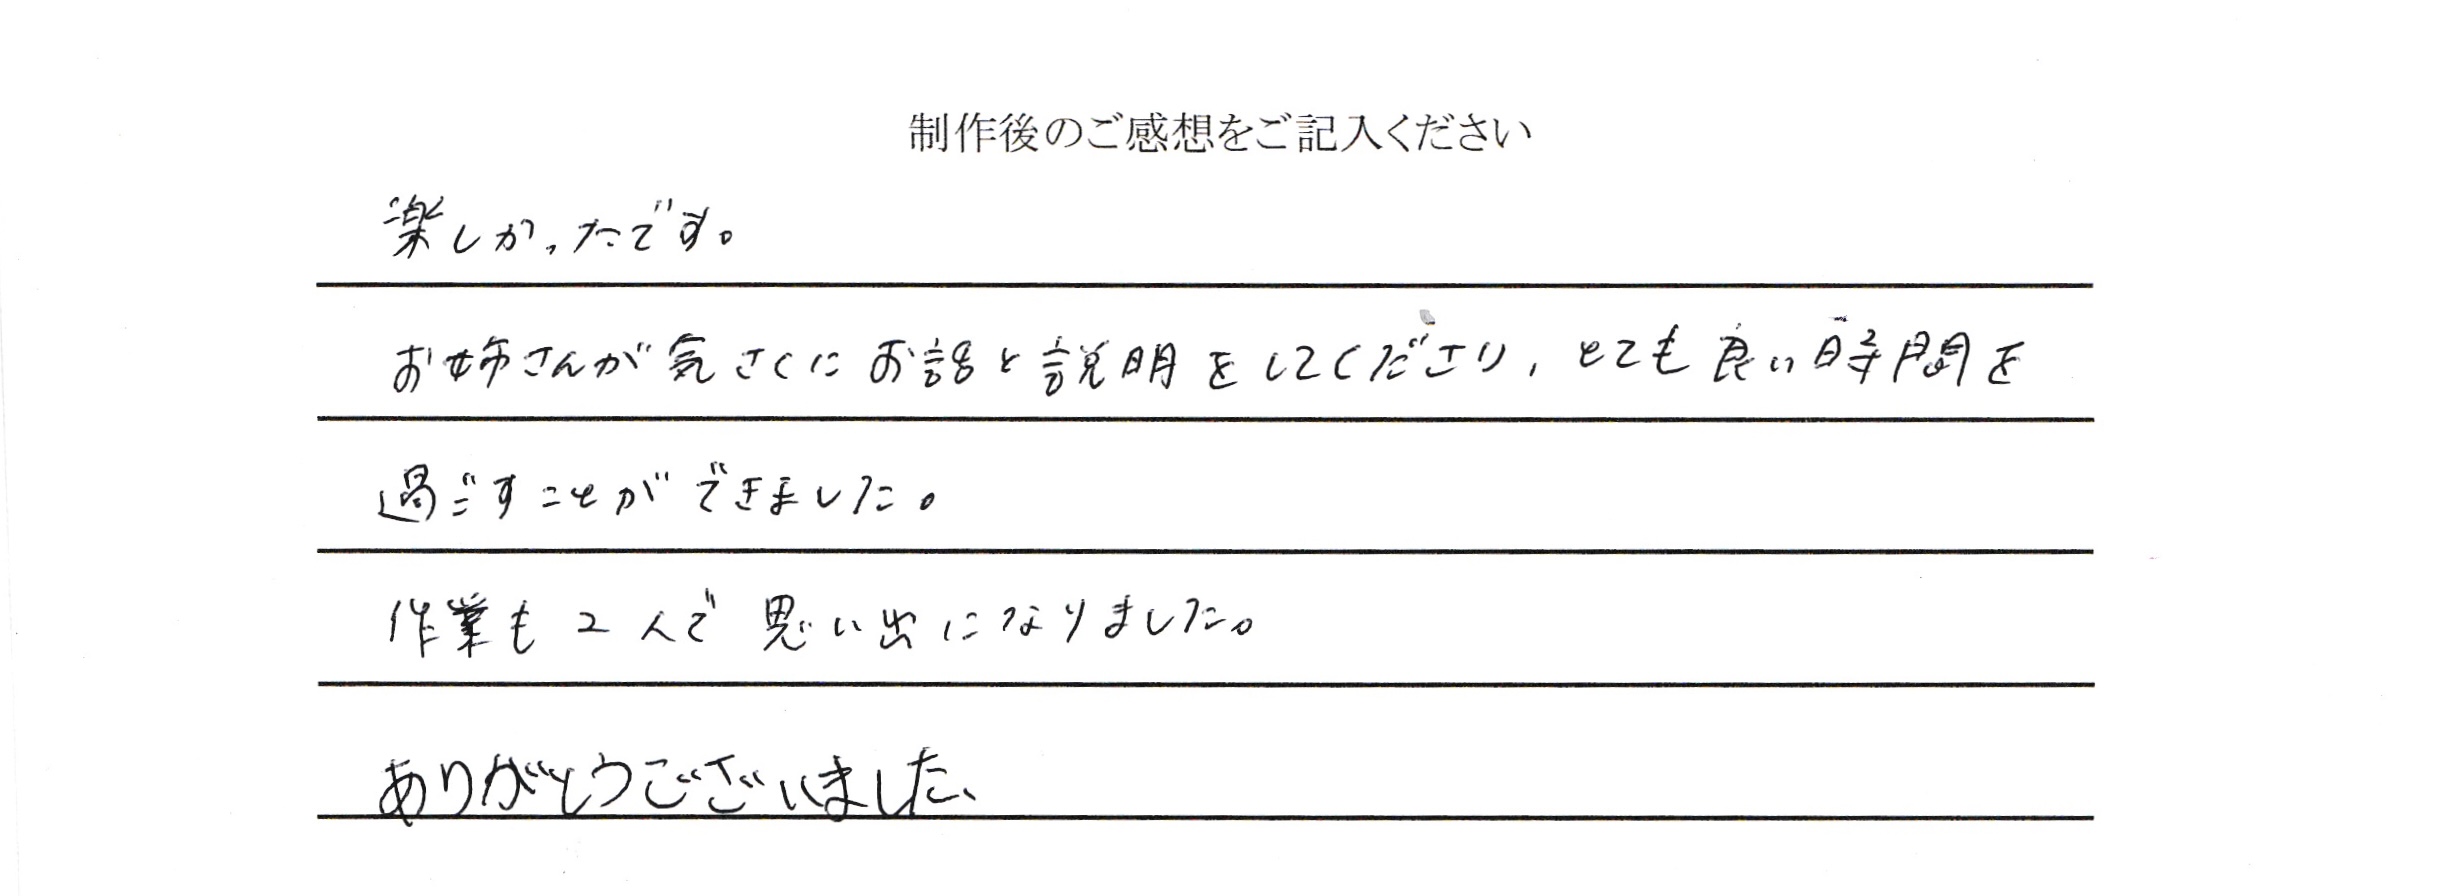 制作後のご感想をご記入ください
楽しかったです。
お姉さんが気さくにお話と説明をしてくださり、とても良い時間を
過ごすことができました。
作業も2人で思い出になりました。
ありがとうございました、